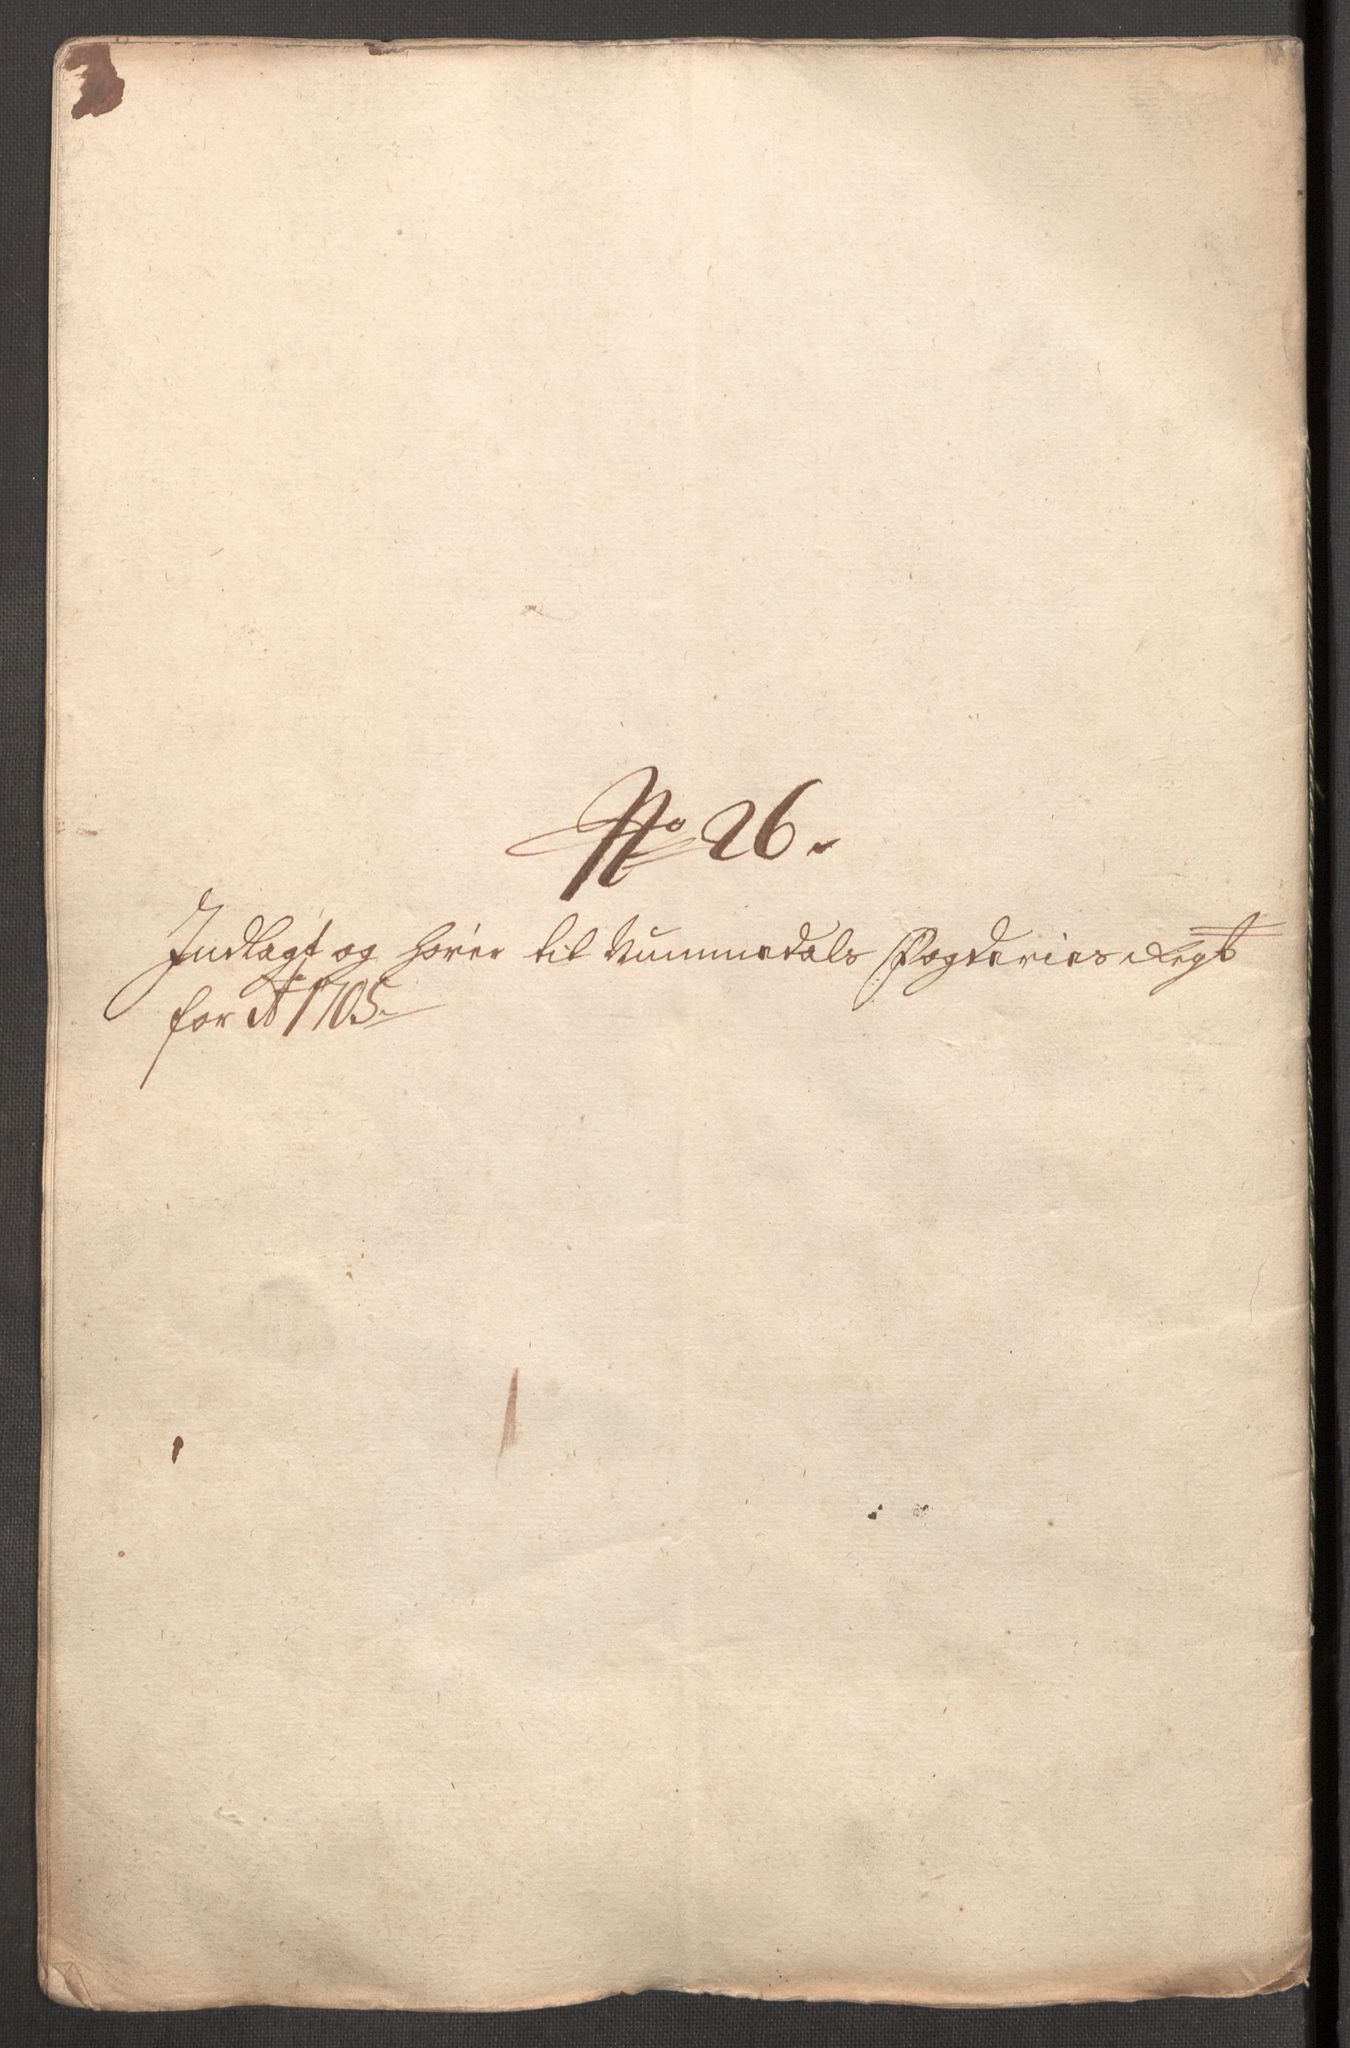 No 26.
Indlagt og hører til Nummedals Fogderies Regt
for Ao 1705.